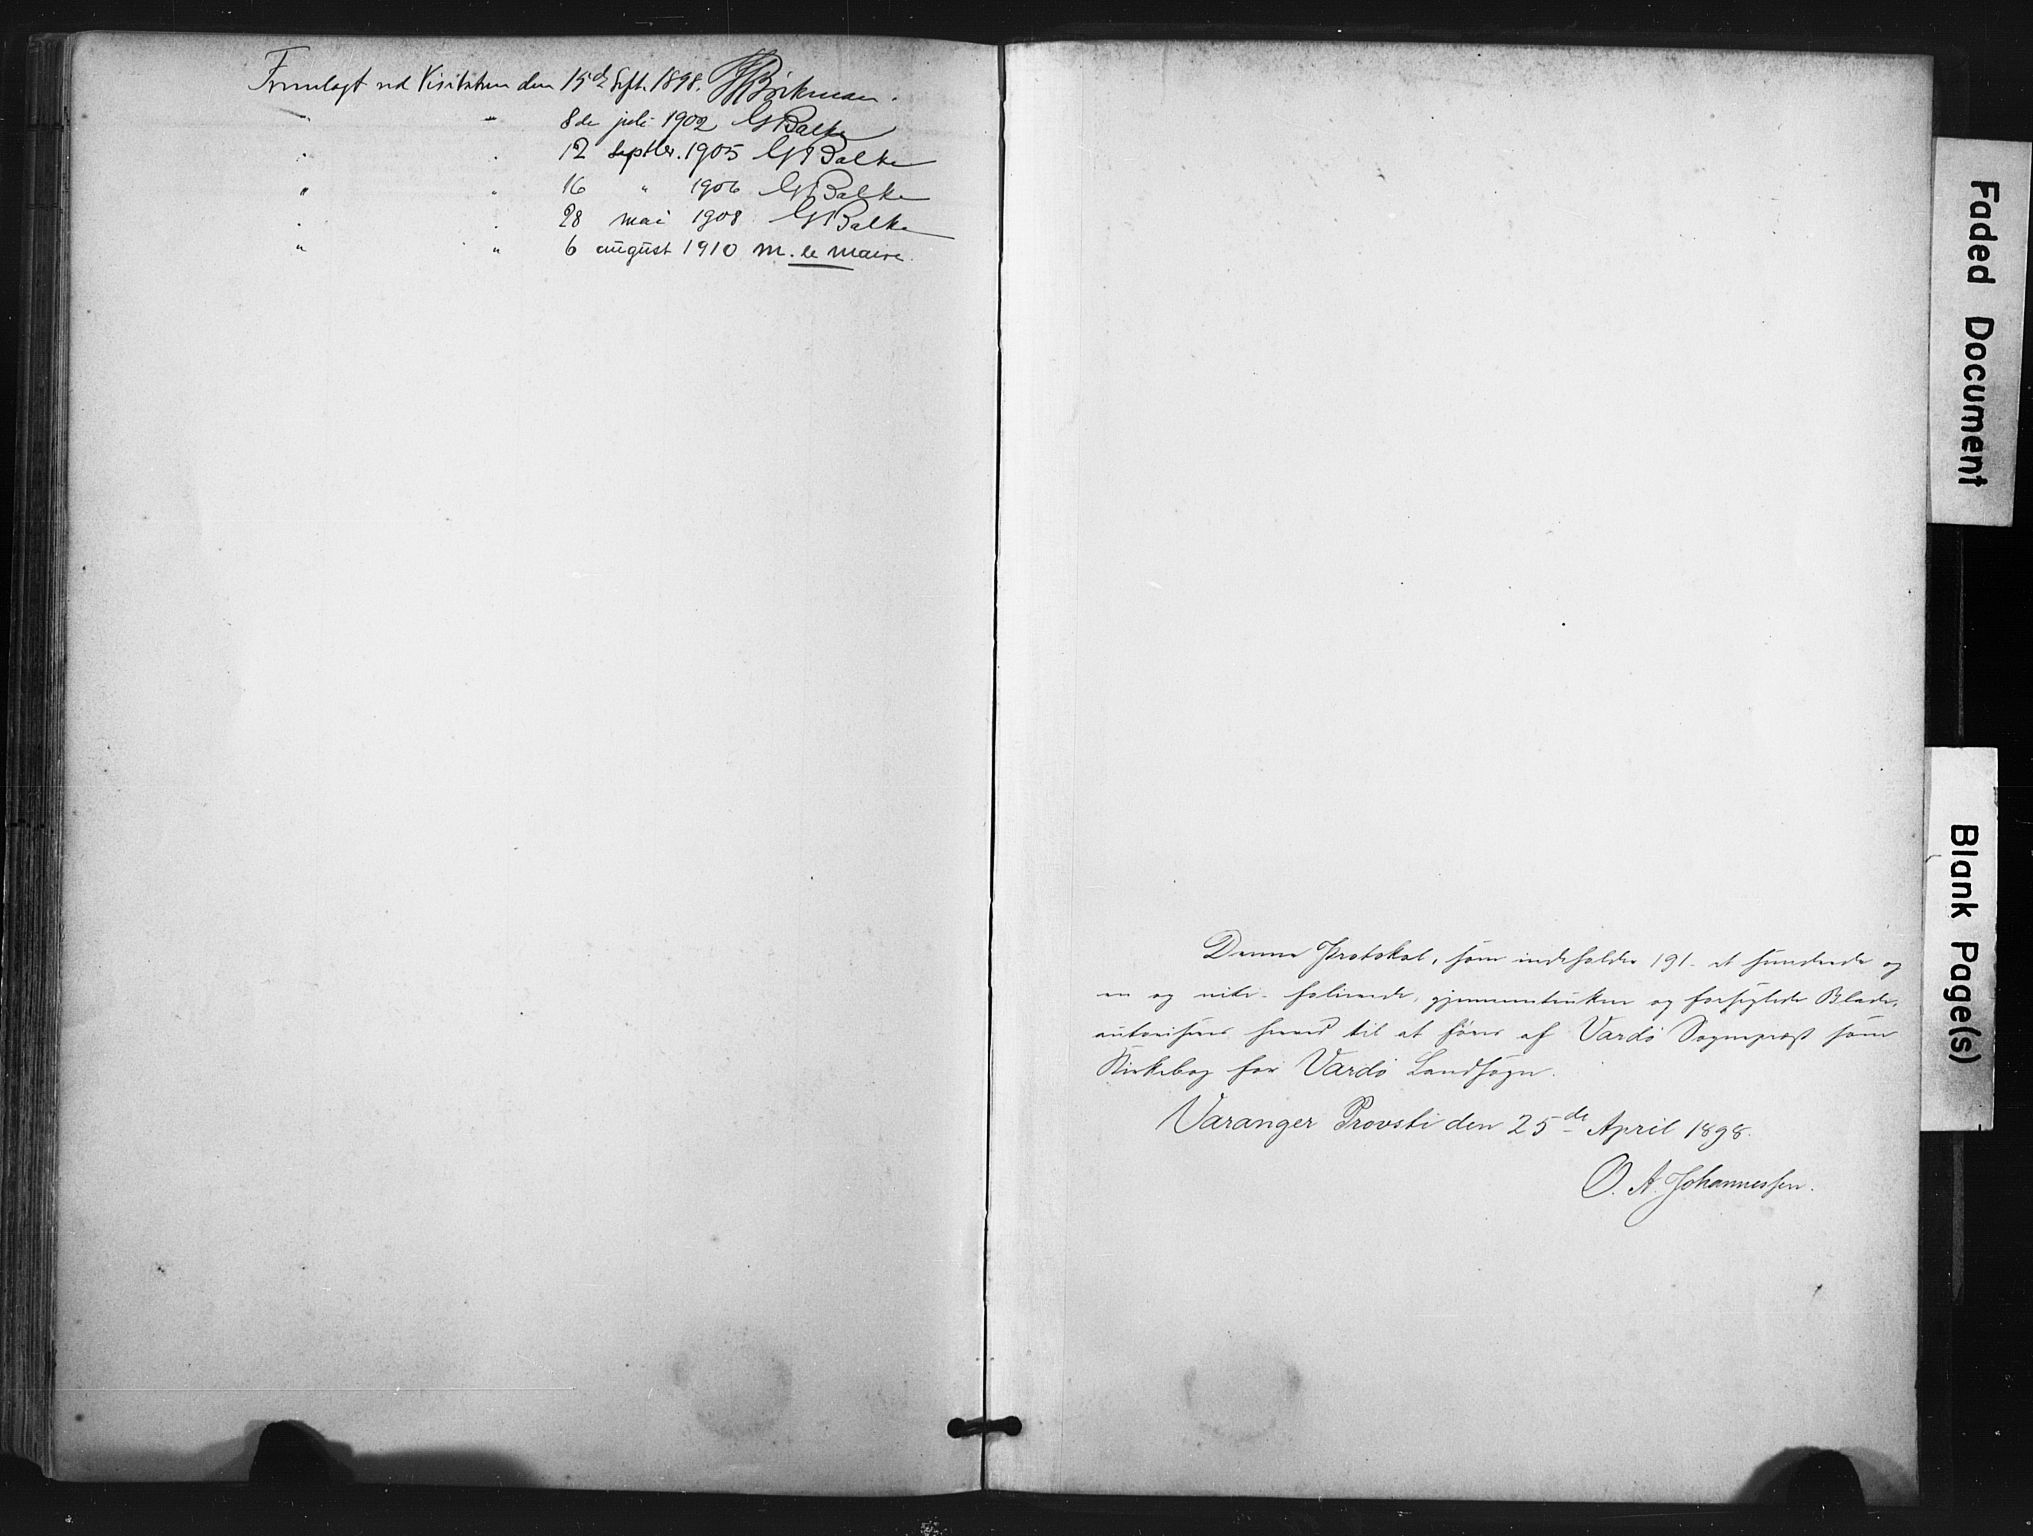 Fremlagt ved Visitatsen den 15de Sept. 1898. Bøkman.
" " 8de juli 1902 G Balke
" " 12 septbr. 1905 G Balke
" " 16 " 1906 G Balke
" " 28 mai 1908 G Balke
" " 6 august 1910 M. le Maire.
Denne Protokol, som indeholder 191 - et hundrede og
en og niti - folierede, gjennemtrukne og forseglede Blade,
autoriseres herved til at føres af Vardø Sogneprest som
Kirkebog for Vardø Landsogn.
Varanger Provsti den 25de April 1898.
O. A. Johannessen.
Faded Document
Blank Page(s)